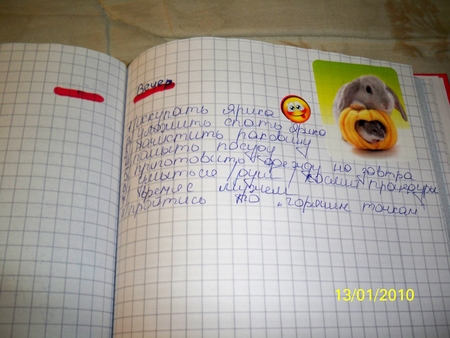 Вечер
1) Искупать Ярика
2) Уложить спать Ярика
3) Почистить раковину
4) Помыть посуду
5) Приготовить одежду на завтра
6) Умыться, душ, космет. процедуры
7) Время с мужем
8) Пройтись по "горячим точкам"
13/01/2010